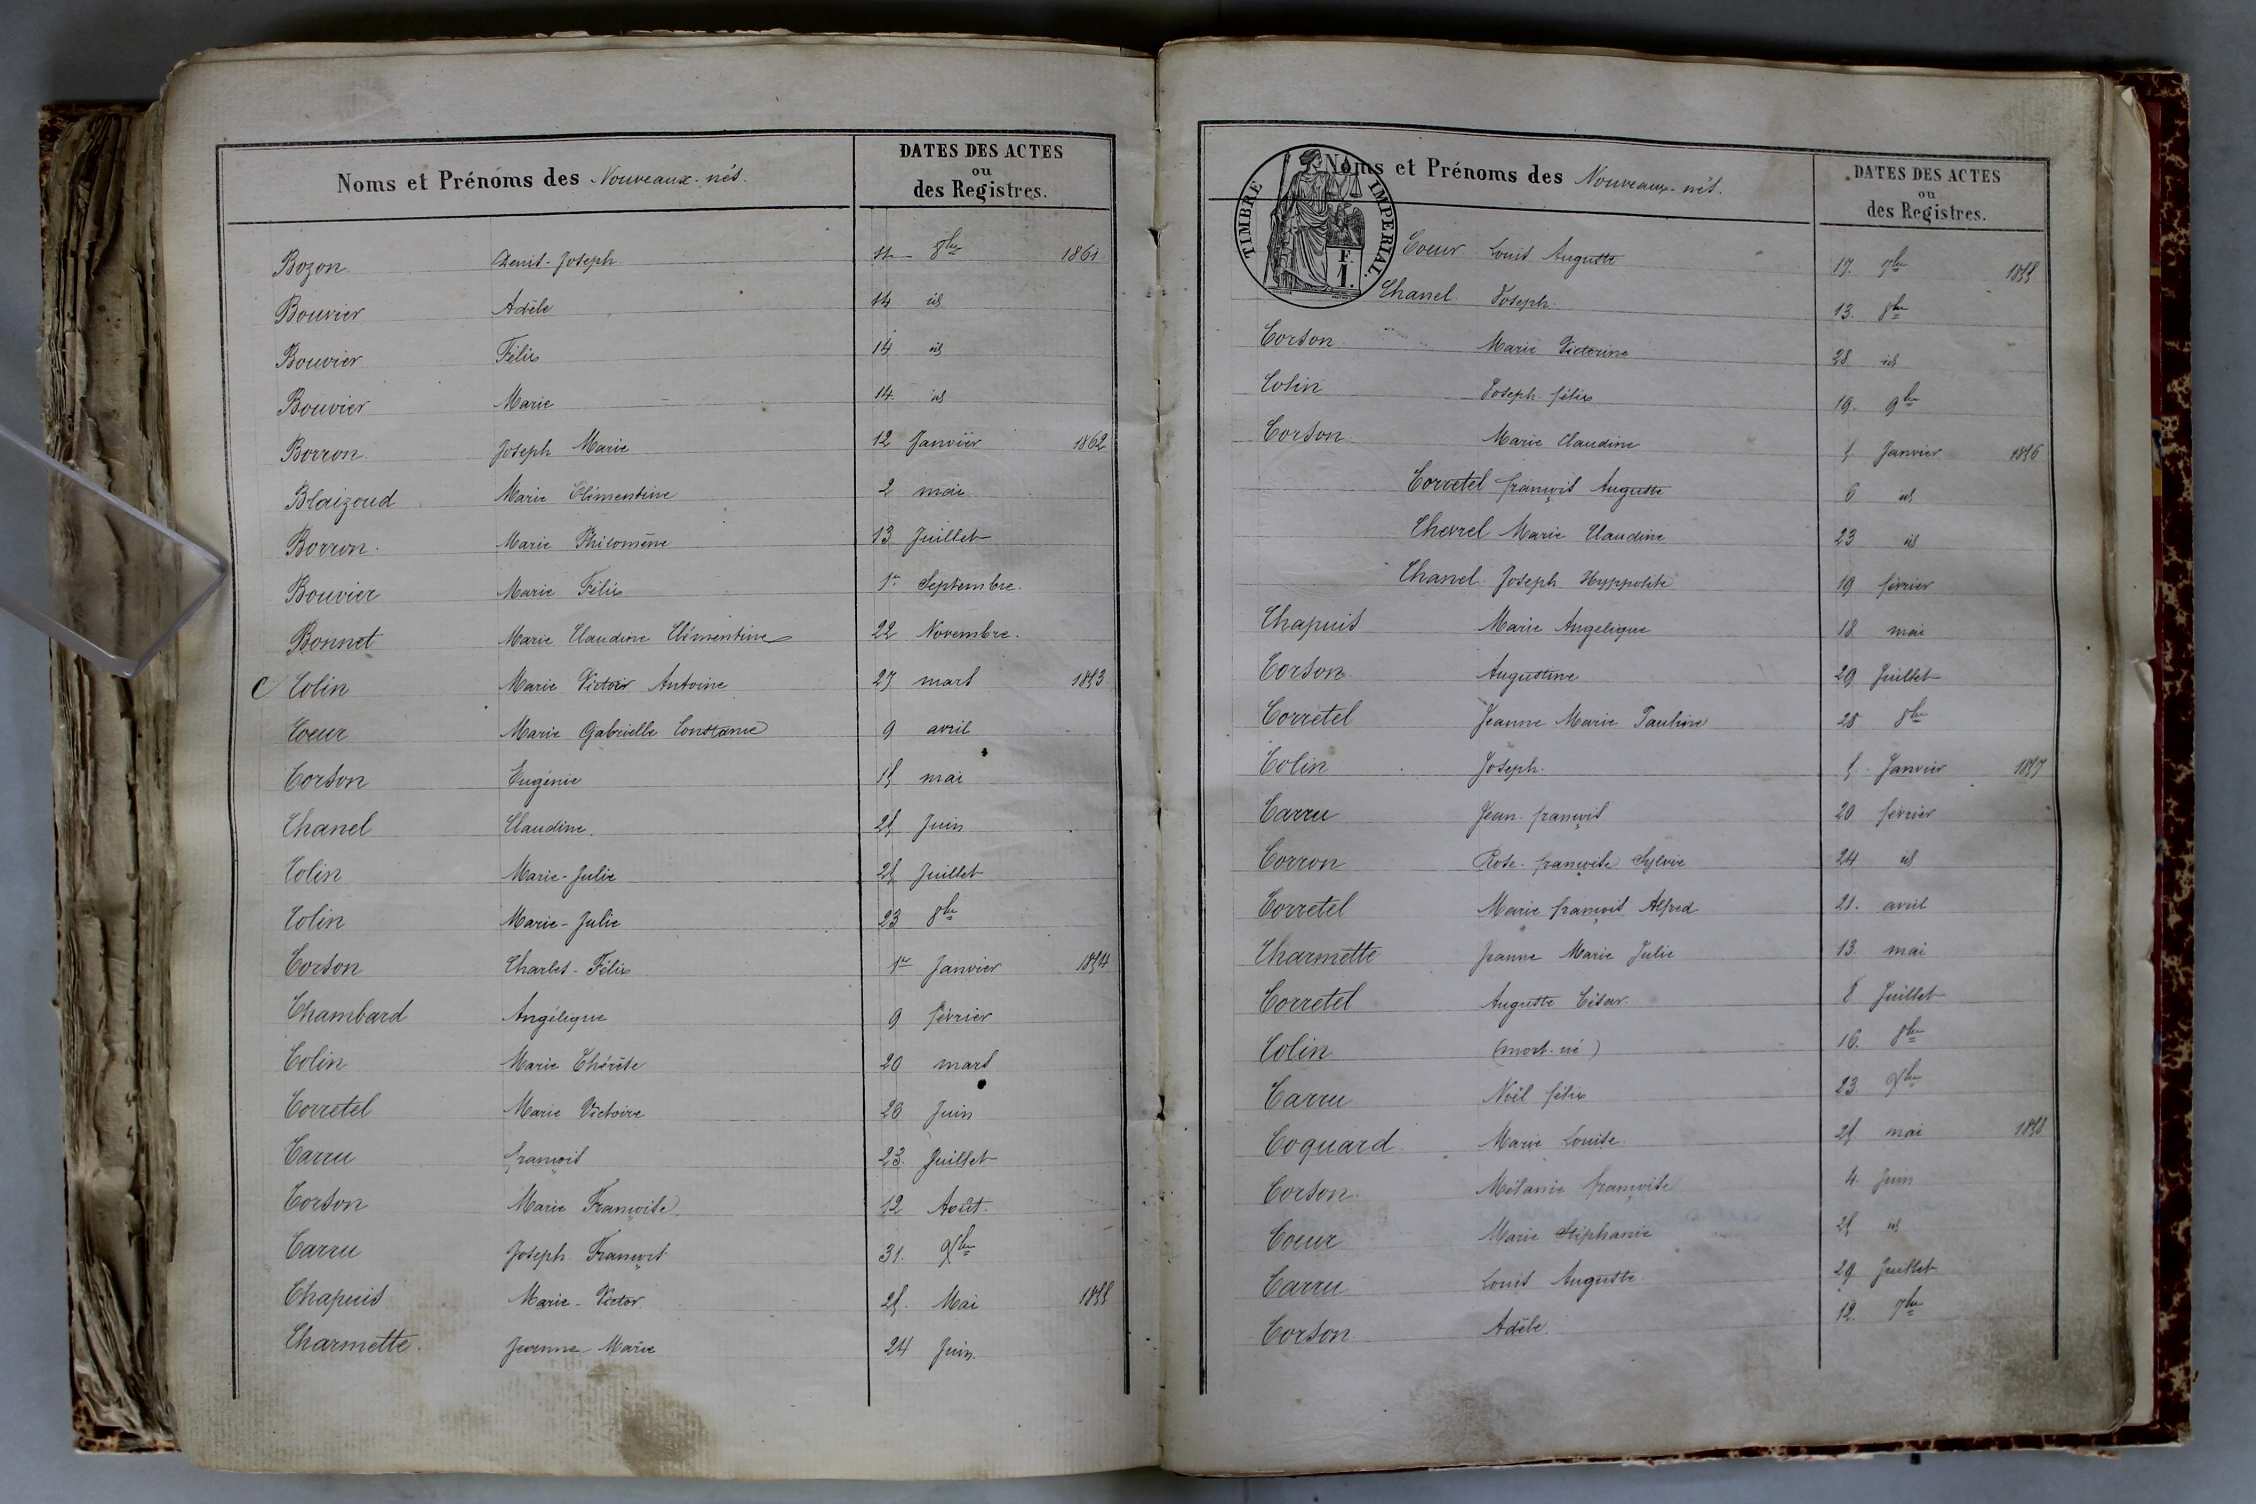 Noms et Prénoms des Nouveaux-nés.
DATES DES ACTES
ou
des Registres.
Bozon Denis-Joseph 11 8bre 1861
Bouvier Adèle 14 id
Bouvier Félix 14 id
Bouvier Marie 14 id
Borron Joseph Marie 12 Janvier 1862
Blaizoud Marie Clémentine 2 mai
Borron Marie Philomène 13 Juillet
Bouvier Marie Félix 1er Septembre.
Bonnet Marie Claudine Clémentine 22 Novembre.
C Colin Marie Victor Antoine 27 mars 1853
Coeur Marie Gabrielle Constance 9 avril
Corson Eugénie 15 mai
Chanel Claudine. 25 Juin
Colin Marie-Julie 25 Juillet
Colin Marie-Julie 23 8bre
Corson Charles-Félix 1er Janvier 1854
Chambard Angélique 9 février
Colin Marie Thérèse 20 mars
Corretel Marie Victoire 20 Juin
Carru françois 23. Juillet
Corson Marie Françoise 12 Août.
Carru Joseph François 31. Xbre
Chapuis Marie-Victor 25. Mai 1855
Charmette. Jeanne-Marie 24 Juin.
TIMBRE IMPÉRIAL.
1 F.
Noms et Prénoms des Nouveaux-nés.
DATES DES ACTES
ou
des Registres.
Coeur Louis Auguste 17. 7bre 1855
Chanel Joseph. 13. 8bre
Corson Marie Victorine 28 id
Colin Joseph félix 19. 9bre
Corson Marie Claudine 5 Janvier 1856
Corretel françois Auguste 6 id
Chevrel Marie Claudine 23 id
Chanel Joseph Hyppolite 19 février
Chapuis Marie Angélique 18 mai
Corson Augustine 29 Juillet
Corretel Jeanne Marie Pauline 28 8bre
Colin Joseph. 5 Janvier 1857
Carru Jean-françois 20 février
Corron Rose-françoise Sylvie 24 id
Corretel Marie françois Alfred 21. avril
Charmette Jeanne Marie Julie 13. mai
Corretel Auguste César. 8 Juillet
Colin (mort-né) 16. 8bre
Carru Noël félix 23 Xbre
Coquard Marie Louise 25 mai 1858
Corson Mélanie françoise 4. Juin
Coeur Marie Stéphanie 25 id
Carru Louis Auguste 29 Juillet
Corson Adèle. 12. 7bre